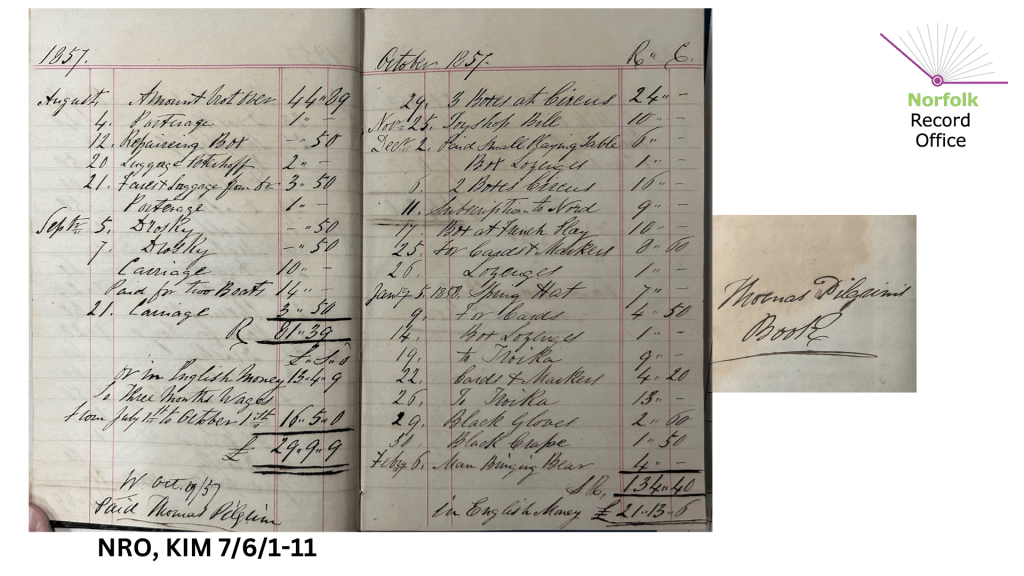 1857.
August Amount brot over 44 " 89
4. Porterage 1 " -
12. Repairing Box - " 50
20 Luggage 2 " -
21. Luggage from 3 " 50
Porterage 1 " -
Septr 5. Drosky - " 50
7. Drosky - " 50
Carriage 10 " -
Paid for two Boats 14 " -
21. Carriage 3 " 50
R 81 " 39
£ " s " d
or in English Money 13 " 4 " 9
To Three Months Wages
from July 1st to October 1st 16 " 5 " 0
£ 29 " 9 " 9
W Oct. 19/57
Paid Thomas Pilgrim
October 1857. R " C.
29. 3 Boxes at Circus 24 " -
Novr 25. Toyshop Bill 10 " -
Decr 2. Paid Small Playing Table 6 " -
Box Lozenges 1 " -
6. 2 Boxes Circus 16 " -
11. Subscription to Nord 9 " -
17. Box at French Play 10 " -
25. For Cards & Markers 8 " 60
26. Lozenges 1 " -
Jany 5. 1858. Spring Hat 7 " -
9. For Cards 4 " 50
14. Box Lozenges 1 " -
19. to Troika 9 " -
22. Cards & Markers 4 " 20
26. To Troika 13 " -
29. Black Gloves 2 " 60
30. Black Crape 1 " 50
Feby 6. Man Bringing Bear 4 " -
S.R. 134 " 40
in English Money £ 21 " 13 " 6
Thomas Pilgrims
Book
Norfolk
Record
Office
NRO, KIM 7/6/1-11